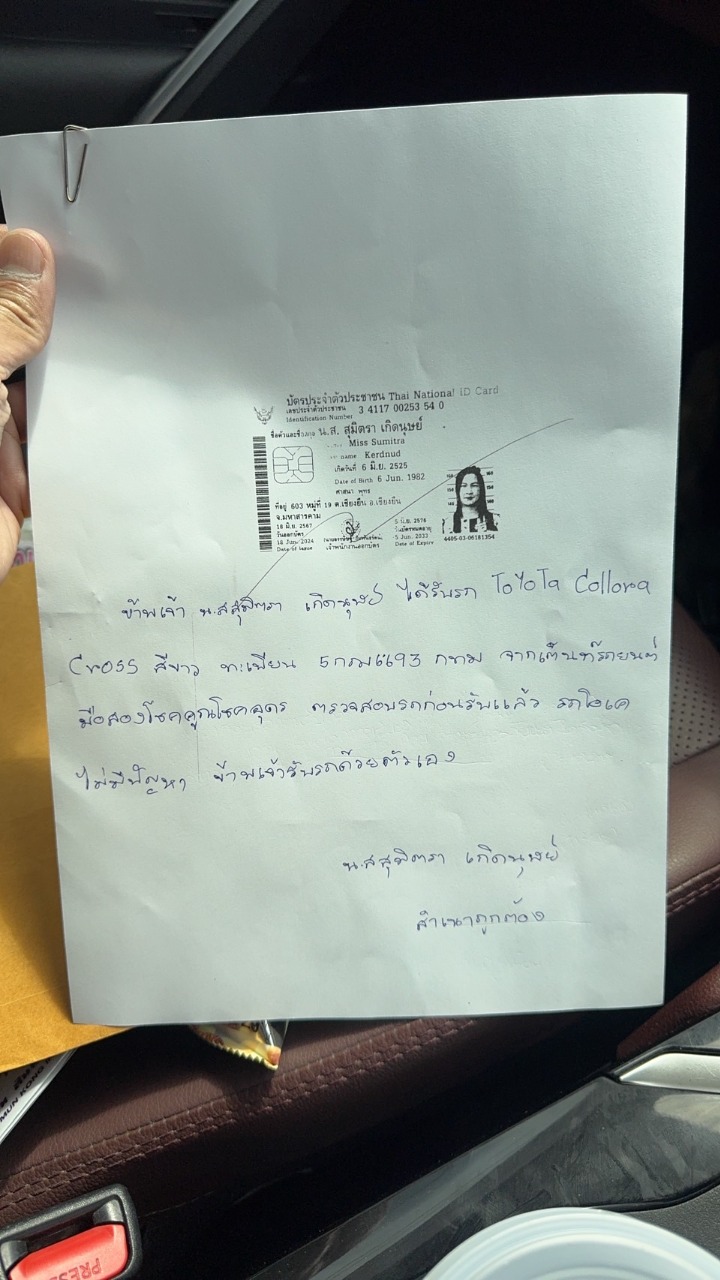 บัตรประจำตัวประชาชน Thai National ID Card
เลขประจำตัวประชาชน 3 4117 00253 54 0
Identification Number
ชื่อตัวและชื่อสกุล น.ส. สุมิตรา เกิดนุษย์
Miss Sumitra
name Kerdnud
เกิดวันที่ 6 มิ.ย. 2525
Date of Birth 6 Jun. 1982
ศาสนา พุทธ
ที่อยู่ 603 หมู่ที่ 19 ต.เชียงยืน อ.เชียงยืน
จ.มหาสารคาม
18 มิ.ย. 2567
วันออกบัตร
18 Jun. 2024
Date of Issue
เจ้าพนักงานออกบัตร
5 มิ.ย. 2576
วันบัตรหมดอายุ
5 Jun. 2033
Date of Expiry
4405-03-06181354
ข้าพเจ้า น.สสุมิตรา เกิดนุษย์ ได้รับรถ ToYoTa Collora
Cross สีขาว ทะเบียน 5กกม1693 กทม จากเต็นท์รถยนต์
มือสองโชคคูณโชคอุดร ตรวจสอบรถก่อนรับแล้ว รถโอเค
ไม่มีปัญหา ข้าพเจ้ารับรถด้วยตัวเอง
น.สสุมิตรา เกิดนุษย์
สำเนาถูกต้อง
PRESS
MUN KONG